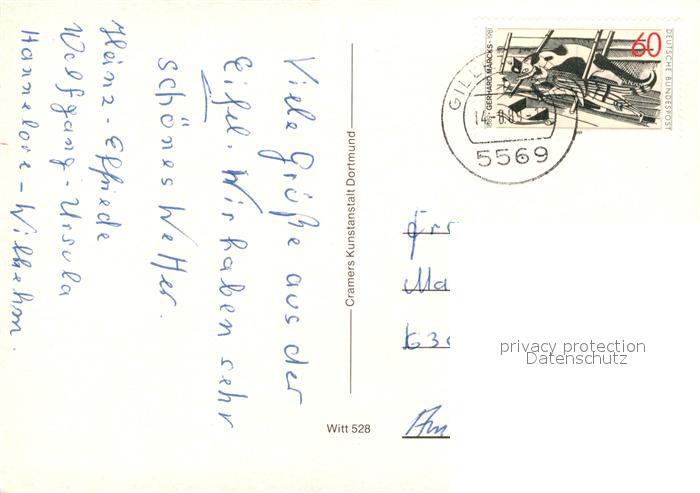 Viele Grüße aus der
Eifel. Wir haben sehr
schönes Wetter.
Heinz - Elfriede
Wolfgang - Ursula
Hannelore - Wilhelm.
Cramers Kunstanstalt Dortmund
Witt 528
60
DEUTSCHE BUNDESPOST
GERHARD MARCKS
5569
privacy protection
Datenschutz